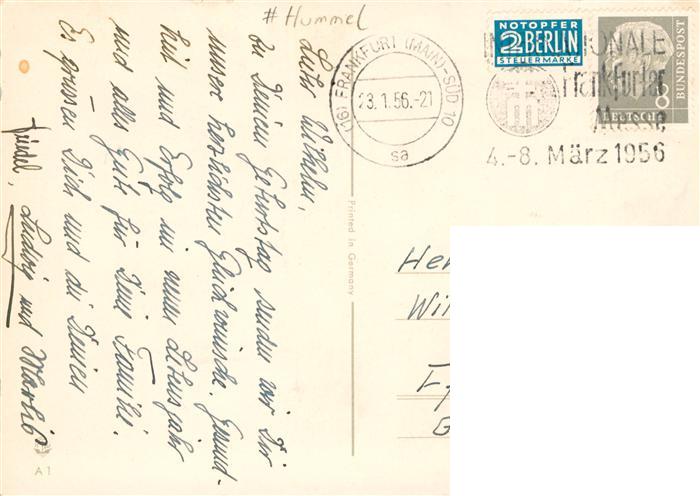 # Hummel
NOTOPFER
2 BERLIN
STEUERMARKE
DEUTSCHE
BUNDESPOST
8
(16) FRANKFURT (MAIN)-SÜD 10
23.1.56.-21
sa
INTERNATIONALE
Frankfurter
Messe
4.-8. März 1956
Lieber Wilhelm,
zu Deinem Geburtstag senden wir Dir
unsere herzlichsten Glückwünsche. Gesund-
heit und Erfolg im neuen Lebensjahr
und alles Gute für Deine Familie.
Es grüssen Dich und die Deinen
Friedel, Ludwig und Marlis
Printed in Germany
A 1